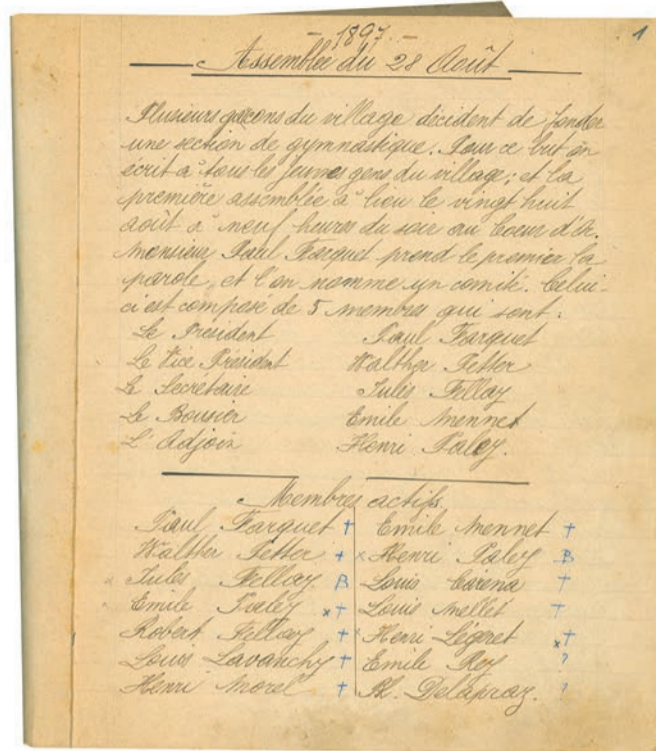 - 1897. -
1
Assemblée du 28 Août
Plusieurs garçons du village décident de fonder
une section de gymnastique. Pour ce but on
écrit à tous les jeunes gens du village; et la
première assemblée à lieu le vingt huit
août à neuf heures du soir au Coeur d'Or.
Monsieur Paul Farquet prend le premier la
parole, et l'on nomme un comité. Celui-
ci est composé de 5 membres qui sont:
Le Président Paul Farquet
Le Vice Président Walther Petter
Le Secrétaire Jules Fellay
Le Boursier Emile Mennet
L'Adjoin Henri Paley.
Membres actifs.
Paul Farquet + Emile Mennet +
Walther Petter + x Henri Paley B
Jules Fellay B Louis Carena +
Emile Paley x+ Louis Mellet +
Robert Fellay + x Henri Légeret x+
Louis Lavanchy + Emile Rey ?
Henri Morel + Al. Delapraz. ?